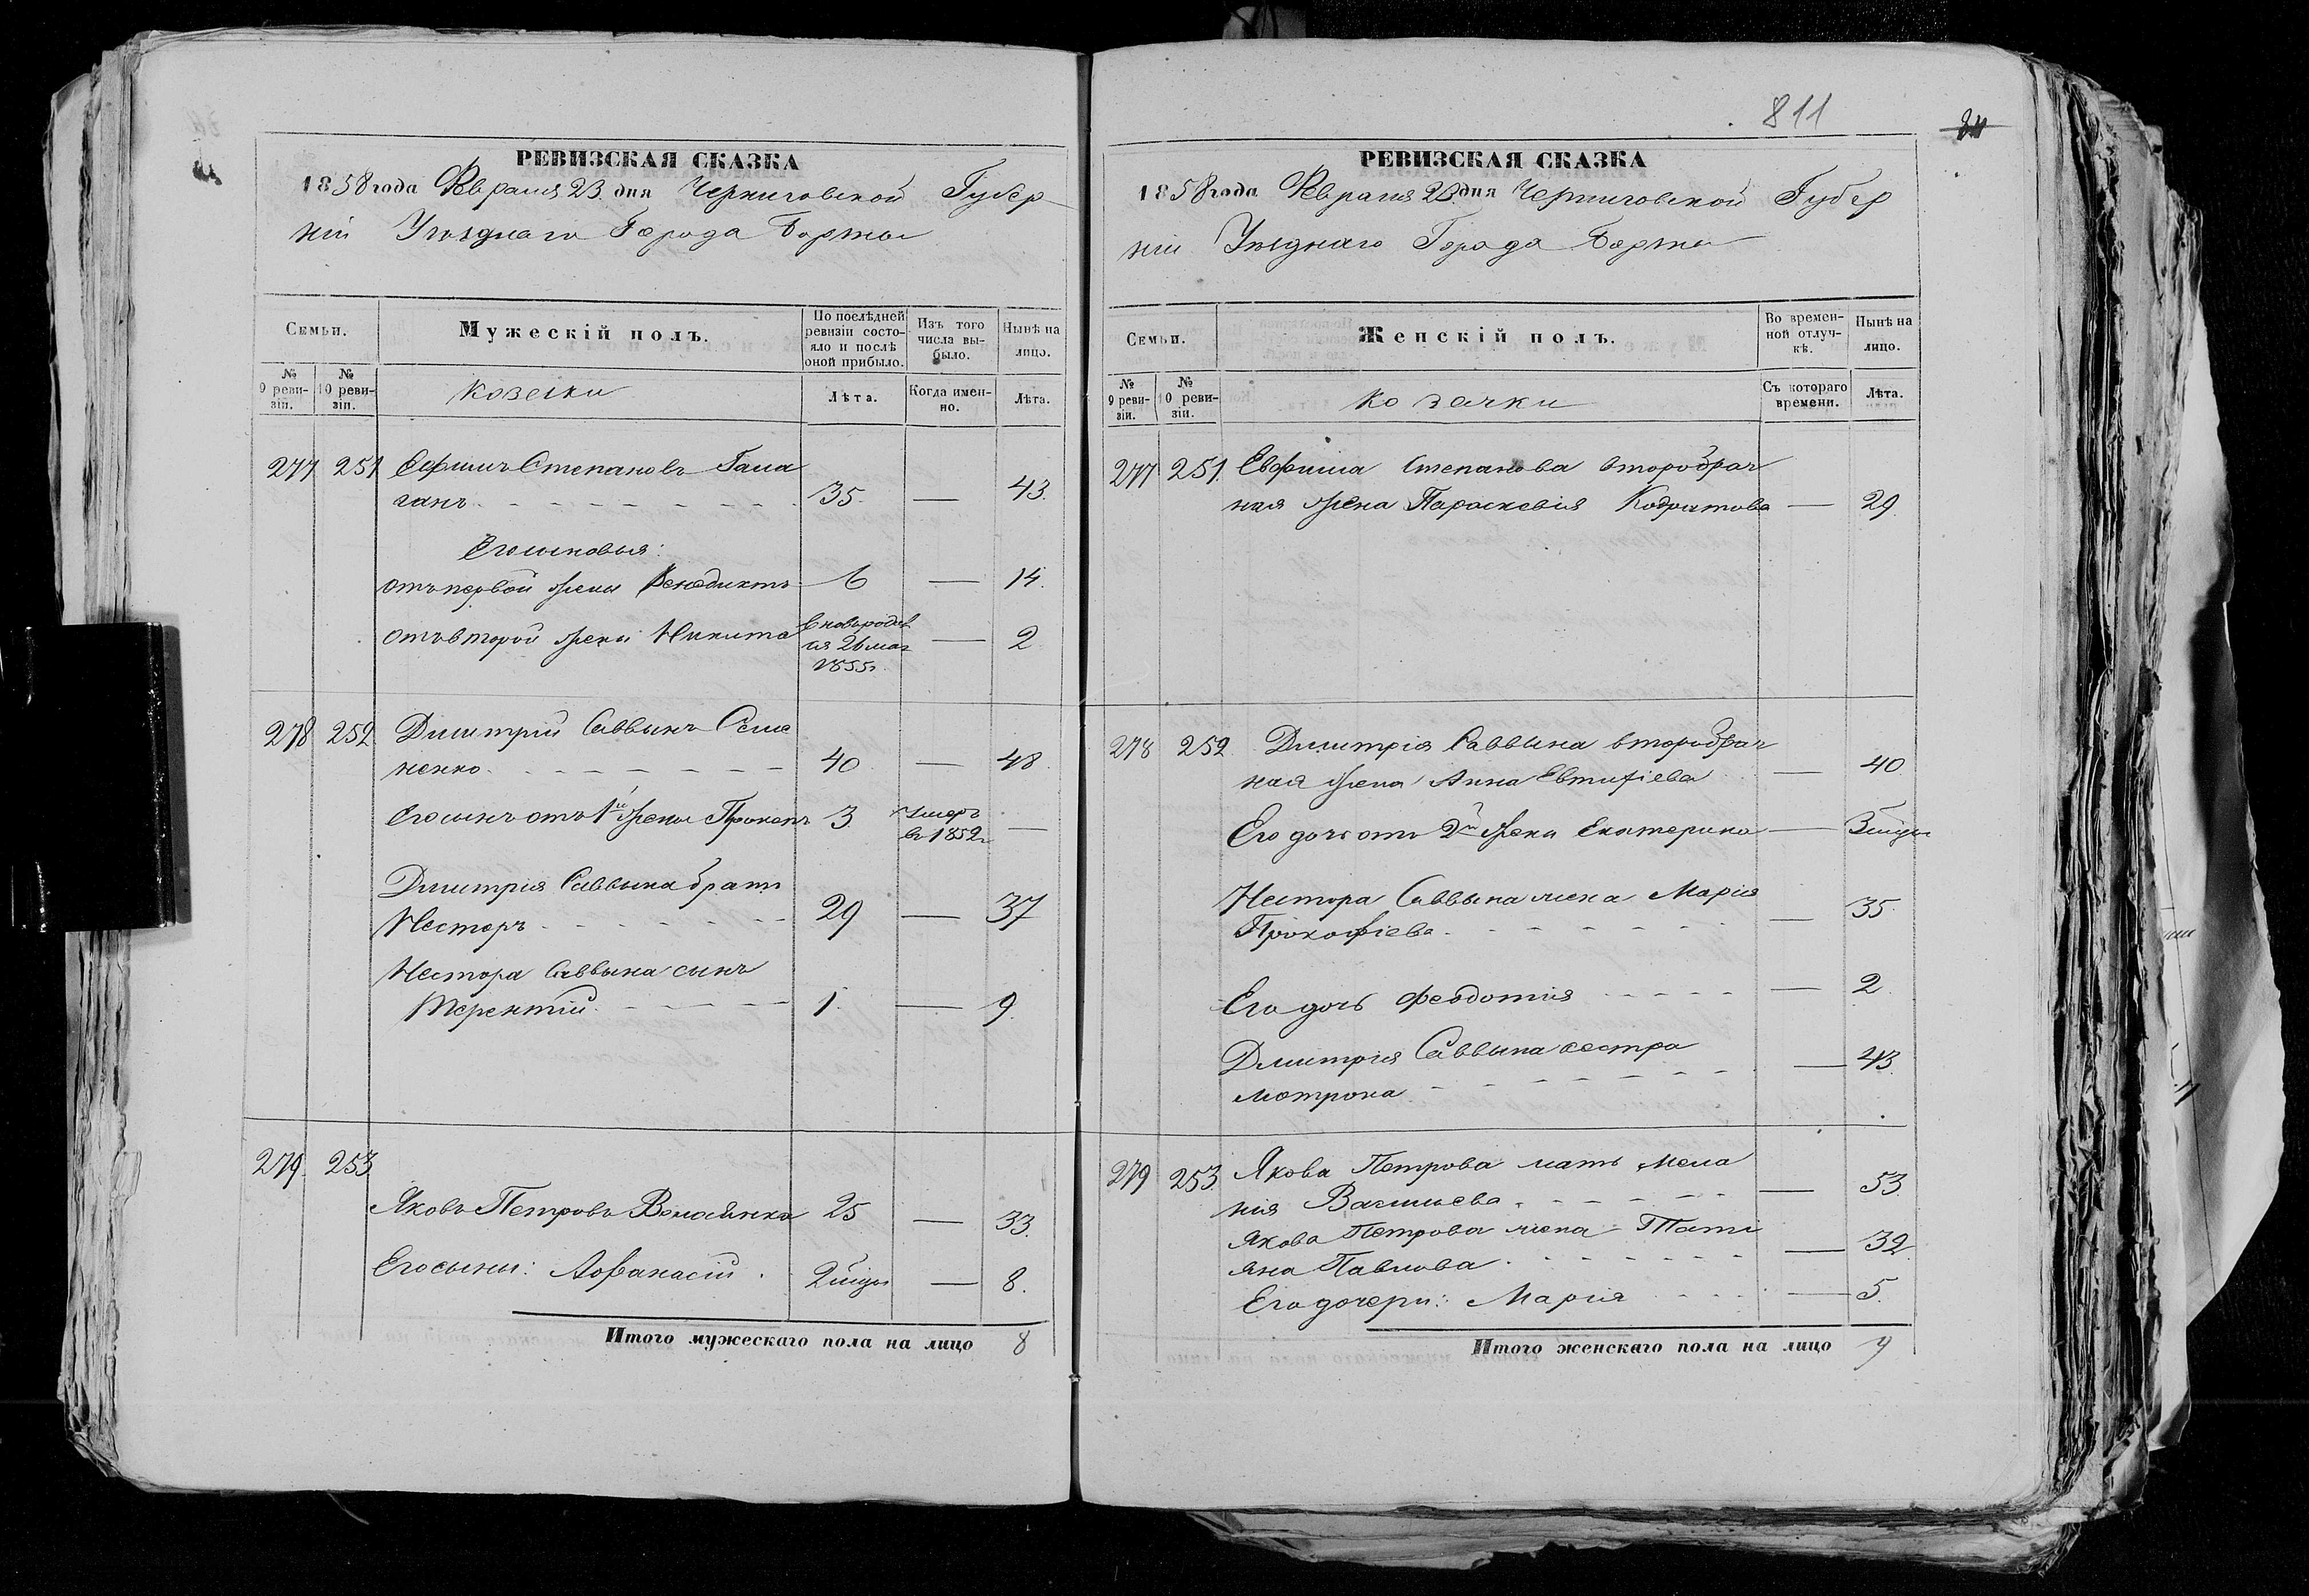 811
РЕВИЗСКАЯ СКАЗКА
1858 года Февраля 23 дня Черниговской Губер
ніи Уѣзднаго Города Борзны
Семьи.
Мужескій полъ.
По послѣдней ревизіи состояло и послѣ оной прибыло.
Изъ того числа выбыло.
Нынѣ на лицо.
№ 9 ревизіи.
№ 10 ревизіи.
Козаки
Лѣта.
Когда именно.
Лѣта.
277 251 Ефимъ Степановъ Гама
35 — 43.
Его сыновья:
отъ первой жены Венедиктъ 6 — 14.
отъ второй жены Никита
вновь родил
ся 26 мая
1855г.
— 2
278 252 Дмитрій Саввинъ Семе
ненко 40 — 48.
Его сынъ отъ 1й жены Прокопъ 3
умеръ
въ 1852г.
—
Дмитрія Саввына братъ
Несторъ 29 — 37
Нестора Саввына сынъ
Терентій 1. — 9.
279. 253.
Яковъ Петровъ 25 — 33.
Его сыны: Афанасій 2 — 8.
Итого мужескаго пола на лицо 8
РЕВИЗСКАЯ СКАЗКА
1858 года Февраля 23 дня Черниговской Губер
ніи Уѣзднаго Города Борзны
Семьи.
Женскій полъ.
Во временной отлучкѣ.
Нынѣ на лицо.
№ 9 ревизіи.
№ 10 ревизіи.
Козачки
Съ котораго времени.
Лѣта.
277 251. Евфима Степанова второбрач
ная жена Параскевія Кодратова — 29.
278 252. Дмитрія Саввына второбрач
ная жена Анна Евтихіева — 40
Его дочь отъ 2й жены Екатерина — 3
Нестора Саввына жена Марія
Прокофіева — 35.
Его дочь Феодотія — 2.
Дмитрія Саввына сестра
Мотрона — 43.
279 253. Якова Петрова мать Мела
нія Васильева — 53
Якова Петрова жена Тати
яна Павлова — 32
Его дочери: Марія — 5.
Итого женскаго пола на лицо 9